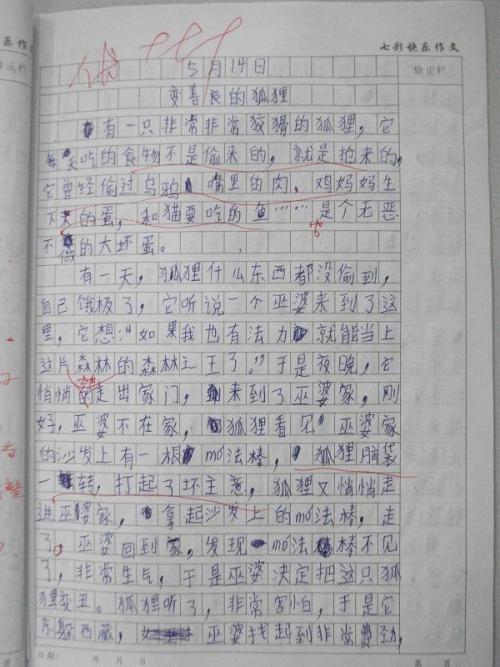 七彩快乐作文
乐作文
修正栏
修正栏
优
5月14日
变善良的狐狸
有一只非常非常狡猾的狐狸，它
每天吃的食物不是偷来的，就是抢来的，
它曾经偷过乌鸦嘴里的肉。鸡妈妈生
下来的蛋，和猫要吃的鱼……是个无恶
不做的大坏蛋。
有一天，狐狸什么东西都没偷到，
自己饿极了，它听说一个巫婆来到了这
里，它想：“如果我也有法力就能当上
这片森林的森林之王了。”于是夜晚，它
悄悄的走出家门，来到了巫婆家，刚
好，巫婆不在家，狐狸看见巫婆家
的沙发上有一根mó法棒，狐狸脑袋
一转，打起了坏主意，狐狸又悄悄走
进巫婆家，拿起沙发上的mó法棒，走
了。巫婆回到家，发现mó法棒不见
了，非常生气，于是巫婆决定把这只狐
狸变丑。狐狸听了，非常害怕，于是它
东躲西藏，巫婆找起到非常费劲，
日期： 年 月 日